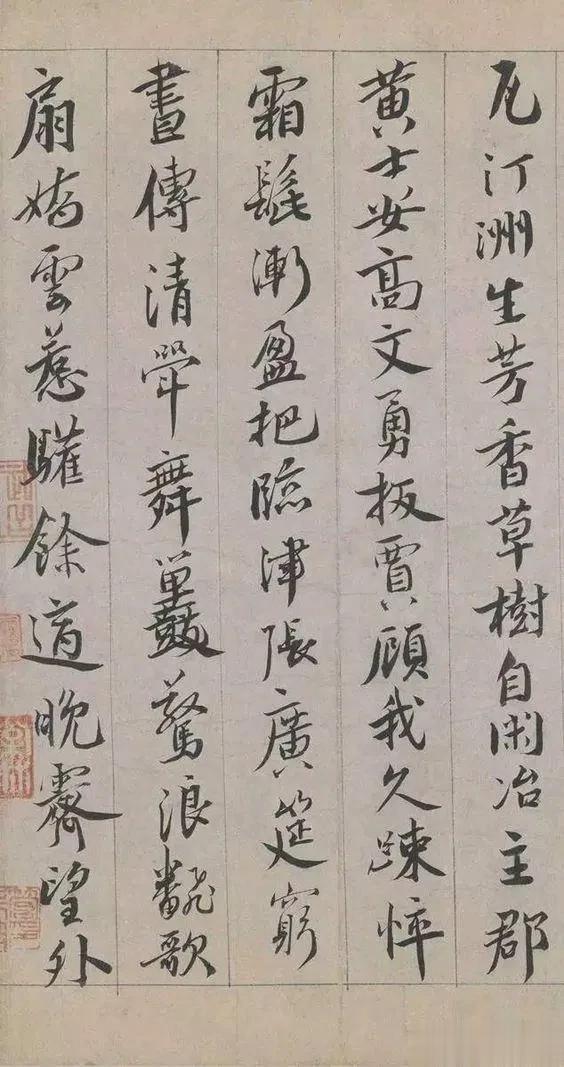 瓦汀洲生芳香草樹自閑冶主郡
黃士安高文勇扳賈顧我久疎悴
霜髭漸盈把臨津張廣筵窮
晝傳清斝舞鼉驚浪飜歌
扇嬌雲惹驩餘適晚霽望外